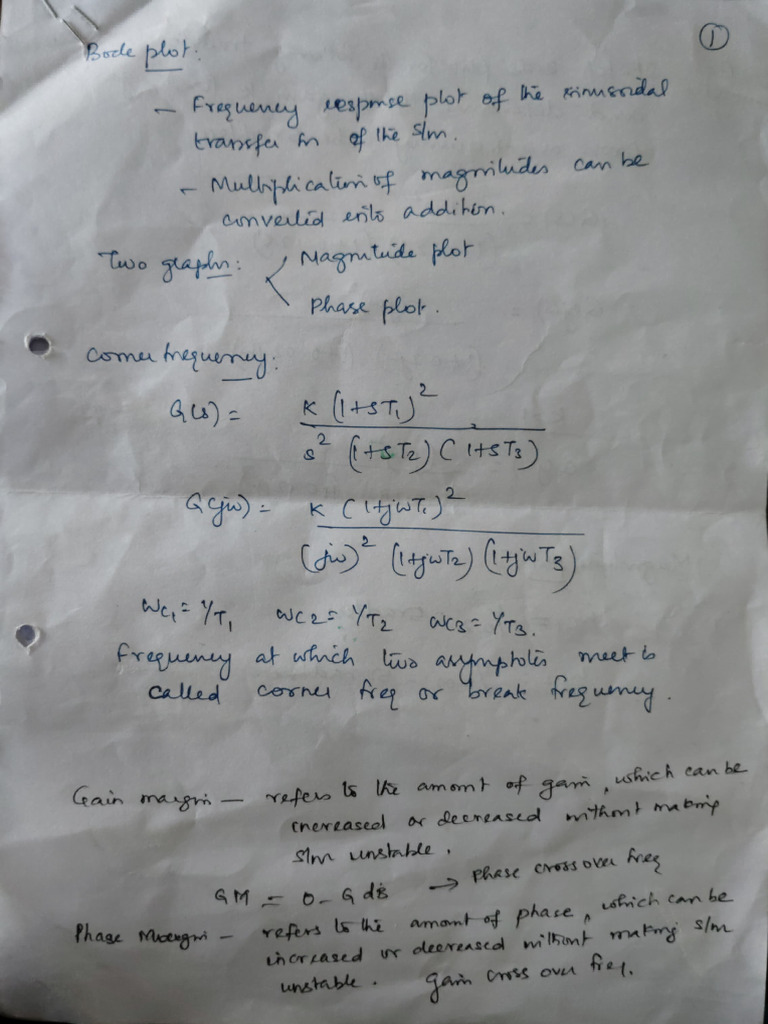 ①
Bode plot:
- Frequency response plot of the sinusoidal
transfer fn of the s/m.
- Multiplication of magnitudes can be
converted into addition.
Two graphs: Magnitude plot
Phase plot.
Corner frequency:
G(s) = K (1+sT₁)² / s² (1+sT₂) (1+sT₃)
G(jω) = K (1+jωT₁)² / (jω)² (1+jωT₂) (1+jωT₃)
ωc₁ = 1/T₁ ωc₂ = 1/T₂ ωc₃ = 1/T₃.
Frequency at which two asymptotes meet is
called corner freq or break frequency.
Gain margin – refers to the amont of gain, which can be
increased or decreased without making
s/m unstable.
GM = 0 - G dB → phase cross over freq
Phase Margin – refers to the amont of phase, which can be
increased or decreased without making s/m
unstable. gain cross over freq.